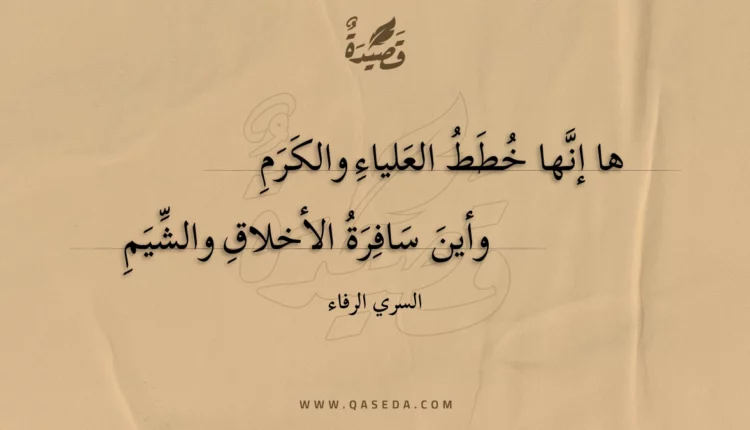 قَصِيدَةٌ
ها إنَّها خُطَطُ العَلياءِ والكَرَمِ
وأينَ سَافِرَةُ الأخلاقِ والشِّيَمِ
السري الرفاء
WWW.QASEDA.COM